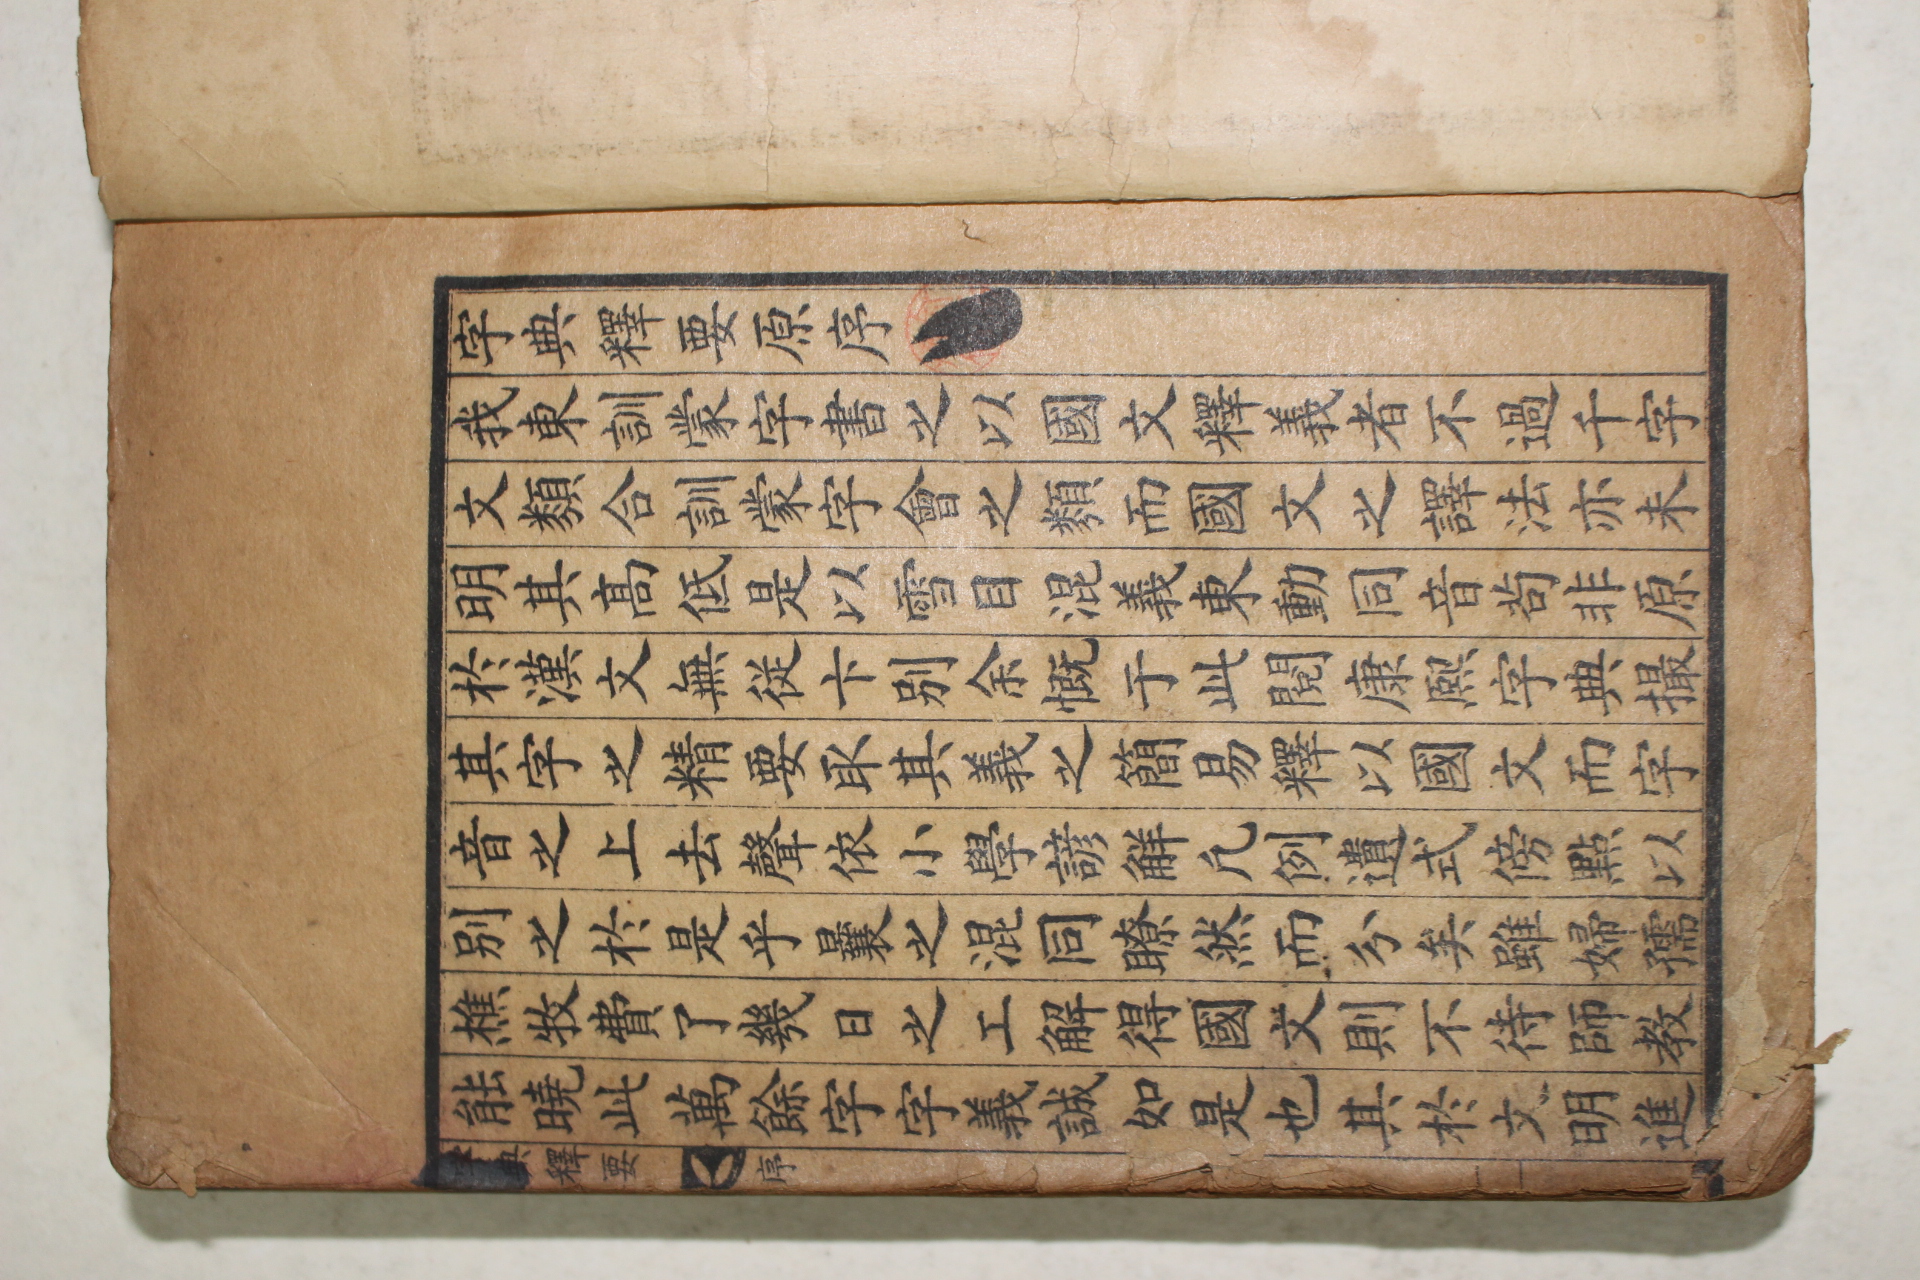 字典釋要原序
我東訓蒙字書之以國文釋義者不過千字
文類合訓蒙字會之類而國文之譯法亦未
明其高低是以雪目混義東動同音苟非原
於漢文無従卞別余慨于此閱康熙字典撮
其字之精要取其義之簡易釋以國文而字
音之上去聲依小學諺解凡例遺式傍點以
別之於是乎曩之混同瞭然而分矣雖婦孺
樵牧費了幾日之工解得國文則不待師教
能曉此萬餘字字義誠如是也其於文明進
典釋要 序 一